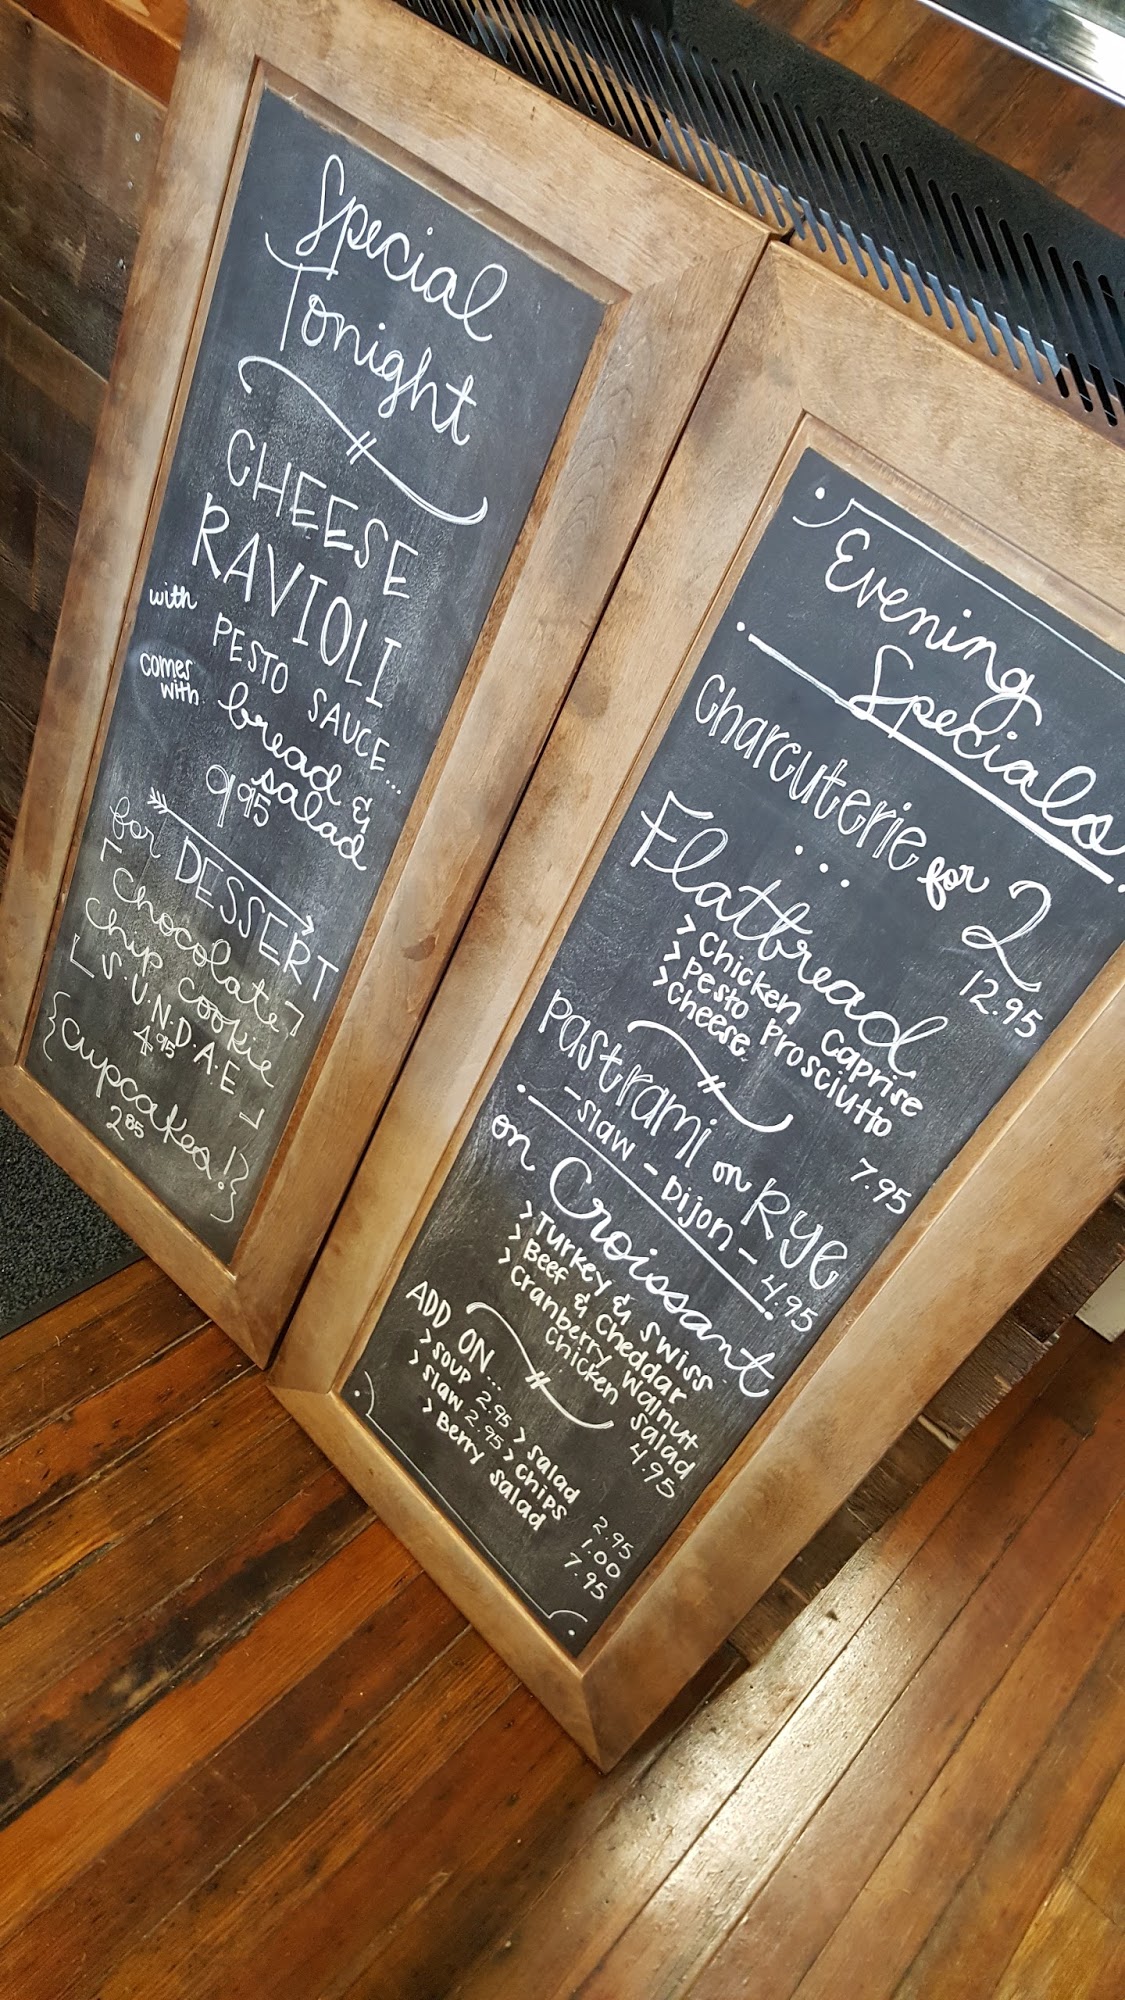 Special
Tonight
CHEESE
RAVIOLI
with PESTO SAUCE...
comes with bread &
salad
9.95
for DESSERT
Chocolate
Chip Cookie
S.U.N.D.A.E
4.95
{Cupcakes!}
Evening
Specials
Charcuterie for 2
12.95
Flatbread
> Chicken Caprise
> Pesto Prosciutto
> Cheese
7.95
Pastrami on Rye
- Slaw - Dijon - 4.95
on Croissant
> Turkey & Swiss
> Beef & Cheddar
> Cranberry Walnut
Chicken Salad
4.95
ADD ON...
> Soup 2.95 > Salad 2.95
> Slaw 2.95 > Chips 1.00
> Berry Salad 7.95